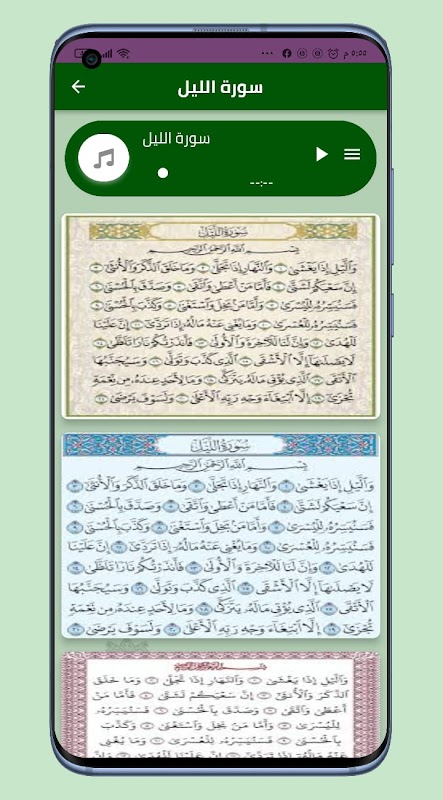 ٥:٥٥ م
سورة الليل
سورة الليل
--:--
سُورَةُ اللَّيْلِ
بِسْمِ اللَّهِ الرَّحْمَٰنِ الرَّحِيمِ
وَاللَّيْلِ إِذَا يَغْشَىٰ ١ وَالنَّهَارِ إِذَا تَجَلَّىٰ ٢ وَمَا خَلَقَ الذَّكَرَ وَالْأُنثَىٰ ٣
إِنَّ سَعْيَكُمْ لَشَتَّىٰ ٤ فَأَمَّا مَنْ أَعْطَىٰ وَاتَّقَىٰ ٥ وَصَدَّقَ بِالْحُسْنَىٰ ٦
فَسَنُيَسِّرُهُ لِلْيُسْرَىٰ ٧ وَأَمَّا مَن بَخِلَ وَاسْتَغْنَىٰ ٨ وَكَذَّبَ بِالْحُسْنَىٰ ٩
فَسَنُيَسِّرُهُ لِلْعُسْرَىٰ ١٠ وَمَا يُغْنِي عَنْهُ مَالُهُ إِذَا تَرَدَّىٰ ١١ إِنَّ عَلَيْنَا
لَلْهُدَىٰ ١٢ وَإِنَّ لَنَا لَلْآخِرَةَ وَالْأُولَىٰ ١٣ فَأَنذَرْتُكُمْ نَارًا تَلَظَّىٰ ١٤
لَا يَصْلَاهَا إِلَّا الْأَشْقَى ١٥ الَّذِي كَذَّبَ وَتَوَلَّىٰ ١٦ وَسَيُجَنَّبُهَا
الْأَتْقَى ١٧ الَّذِي يُؤْتِي مَالَهُ يَتَزَكَّىٰ ١٨ وَمَا لِأَحَدٍ عِندَهُ مِن نِّعْمَةٍ
تُجْزَىٰ ١٩ إِلَّا ابْتِغَاءَ وَجْهِ رَبِّهِ الْأَعْلَىٰ ٢٠ وَلَسَوْفَ يَرْضَىٰ ٢١
سُورَةُ اللَّيْلِ
بِسْمِ اللَّهِ الرَّحْمَٰنِ الرَّحِيمِ
وَاللَّيْلِ إِذَا يَغْشَىٰ ١ وَالنَّهَارِ إِذَا تَجَلَّىٰ ٢ وَمَا خَلَقَ الذَّكَرَ وَالْأُنثَىٰ ٣
إِنَّ سَعْيَكُمْ لَشَتَّىٰ ٤ فَأَمَّا مَنْ أَعْطَىٰ وَاتَّقَىٰ ٥ وَصَدَّقَ بِالْحُسْنَىٰ ٦
فَسَنُيَسِّرُهُ لِلْيُسْرَىٰ ٧ وَأَمَّا مَن بَخِلَ وَاسْتَغْنَىٰ ٨ وَكَذَّبَ بِالْحُسْنَىٰ ٩
فَسَنُيَسِّرُهُ لِلْعُسْرَىٰ ١٠ وَمَا يُغْنِي عَنْهُ مَالُهُ إِذَا تَرَدَّىٰ ١١ إِنَّ عَلَيْنَا
لَلْهُدَىٰ ١٢ وَإِنَّ لَنَا لَلْآخِرَةَ وَالْأُولَىٰ ١٣ فَأَنذَرْتُكُمْ نَارًا تَلَظَّىٰ ١٤
لَا يَصْلَاهَا إِلَّا الْأَشْقَى ١٥ الَّذِي كَذَّبَ وَتَوَلَّىٰ ١٦ وَسَيُجَنَّبُهَا
الْأَتْقَى ١٧ الَّذِي يُؤْتِي مَالَهُ يَتَزَكَّىٰ ١٨ وَمَا لِأَحَدٍ عِندَهُ مِن نِّعْمَةٍ
تُجْزَىٰ ١٩ إِلَّا ابْتِغَاءَ وَجْهِ رَبِّهِ الْأَعْلَىٰ ٢٠ وَلَسَوْفَ يَرْضَىٰ ٢١
بِسْمِ اللَّهِ الرَّحْمَٰنِ الرَّحِيمِ
وَاللَّيْلِ إِذَا يَغْشَىٰ ١ وَالنَّهَارِ إِذَا تَجَلَّىٰ ٢ وَمَا خَلَقَ
الذَّكَرَ وَالْأُنثَىٰ ٣ إِنَّ سَعْيَكُمْ لَشَتَّىٰ ٤ فَأَمَّا مَنْ
أَعْطَىٰ وَاتَّقَىٰ ٥ وَصَدَّقَ بِالْحُسْنَىٰ ٦ فَسَنُيَسِّرُهُ
لِلْيُسْرَىٰ ٧ وَأَمَّا مَن بَخِلَ وَاسْتَغْنَىٰ ٨ وَكَذَّبَ
بِالْحُسْنَىٰ ٩ فَسَنُيَسِّرُهُ لِلْعُسْرَىٰ ١٠ وَمَا يُغْنِي
عَنْهُ مَالُهُ إِذَا تَرَدَّىٰ ١١ إِنَّ عَلَيْنَا لَلْهُدَىٰ ١٢ وَإِنَّ